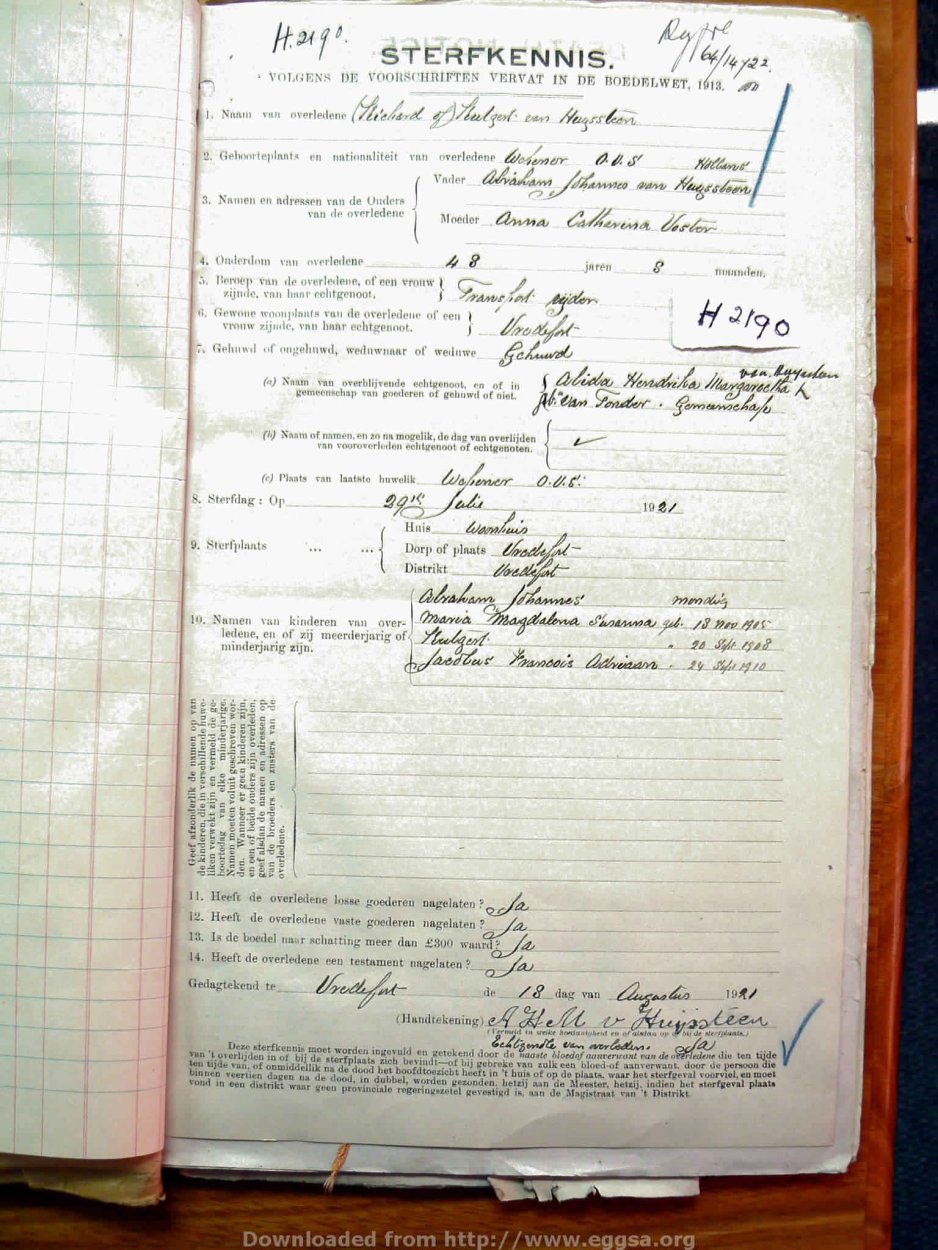 H.2190.
64/14722
STERFKENNIS.
VOLGENS DE VOORSCHRIFTEN VERVAT IN DE BOEDELWET, 1913.
1. Naam van overledene (Richard of) Hulgert van Huyssteen
2. Geboorteplaats en nationaliteit van overledene Wepener O.V.S Hollans
Vader Abraham Johannes van Huyssteen
3. Namen en adressen van de Ouders
van de overledene
Moeder Anna Catharina Voster
4. Ouderdom van overledene 48 jaren 8 maanden.
5. Beroep van de overledene, of een vrouw
zijnde, van haar echtgenoot. Transport rijder
H 2190
6. Gewone woonplaats van de overledene of een
vrouw zijnde, van haar echtgenoot. Vredefort
7. Gehuwd of ongehuwd, weduwnaar of weduwe Gehuwd
(a) Naam van overblijvende echtgenoot, en of in
gemeenschap van goederen of gehuwd of niet.
Alida Hendrika Margaretha
van Tonder. Gemeenschap
(b) Naam of namen, en zo na mogelik, de dag van overlijden
van vooroverleden echtgenoot of echtgenoten.
(c) Plaats van laatste huwelik Wepener O.V.S.
8. Sterfdag: Op 29 Julie 1921
Huis Woonhuis
9. Sterfplaats ... ... Dorp of plaats Vredefort
Distrikt Vredefort
Abraham Johannes mondig
10. Namen van kinderen van over-
ledene, en of zij meerderjarig of
minderjarig zijn.
Maria Magdalena Susanna geb. 13 Nov 1905
Hulgert " 20 Sept 1908
Jacobus Francois Adriaan " 24 Sept 1910
Geef afzonderlik de namen op van
de kinderen, die in verschillende huwe-
liken verwekt zijn en vermeld de ge-
boortedag van elke minderjarige.
Namen moeten voluit geschreven wor-
den. Wanneer er geen kinderen zijn,
en een of beide ouders zijn overleden,
geef alsdan de namen en adressen op
van de broeders en zusters van de
overledene.
11. Heeft de overledene losse goederen nagelaten? Ja
12. Heeft de overledene vaste goederen nagelaten? Ja
13. Is de boedel naar schatting meer dan £300 waard? Ja
14. Heeft de overledene een testament nagelaten? Ja
Gedagtekend te Vredefort de 18 dag van Augustus 1921
(Handtekening) A H M v Huijssteen
(Vermeld in welke hoedanigheid en of alsdan op of bij de sterfplaats.)
Echtgenote van overledene. Ja
Deze sterfkennis moet worden ingevuld en getekend door de naaste bloed of aanverwant van de overledene die ten tijde
van 't overlijden in of bij de sterfplaats zich bevindt—of bij gebreke van zulk een bloed-of aanverwant, door de persoon die
ten tijde van, of onmiddellik na de dood het hoofdtoezicht heeft in 't huis of op de plaats, waar het sterfgeval voorviel, en moet
binnen veertien dagen na de dood, in dubbel, worden gezonden, hetzij aan de Meester, hetzij, indien het sterfgeval plaats
vond in een distrikt waar geen provinciale regeringszetel gevestigd is, aan de Magistraat van 't Distrikt.
Downloaded from http://www.eggsa.org